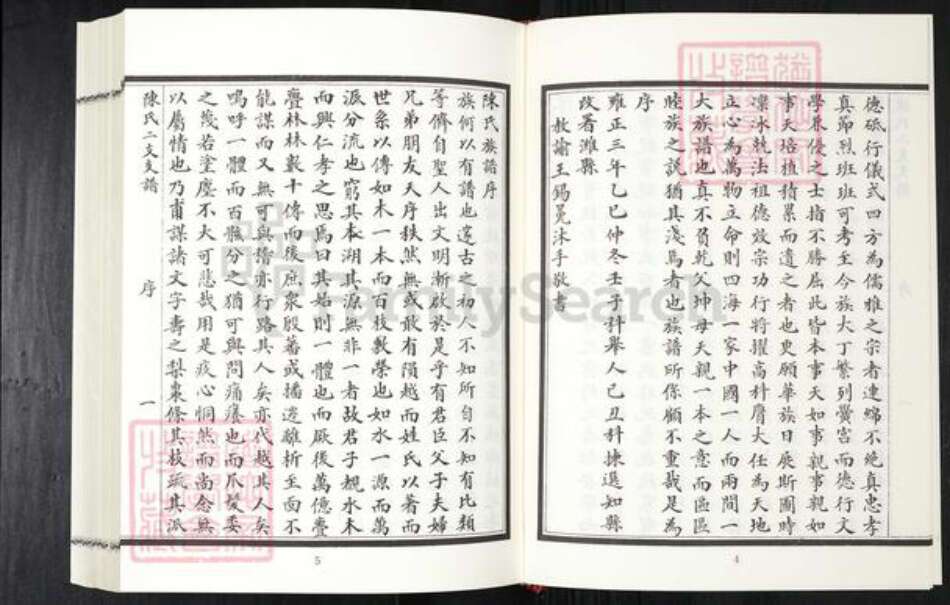 德砥行儀式四方為儒雅之宗者連綿不絶真忠孝
真節烈班班可考至今族大丁繁列黌宫而德行文
學兼優之士指不勝屈此皆本事天如事親事親如
事天培植積累而遺之者也更願華族日展斯圖時
凜冰兢法祖德效宗功行將擢高科膺大任為天地
立心為萬物立命則四海一家中國一人而兩間一
大族譜也真不負乾父坤母天親一本之意而區區
睦族之説猶其淺焉者也族譜所係顧不重哉是為
序
雍正三年乙巳仲冬壬子科舉人己丑科揀選知縣
改署濰縣
教諭王錫冕沐手敬書
4
陳氏族譜序
族何以有譜也邃古之初人不知所自不知有比類
等儕自聖人出文明漸啟於是乎有君臣父子夫婦
兄弟朋友天序秩然無或敢有隕越而姓氏以著而
世系以傳如木一本而百枝敷榮也如水一源而萬
派分流也窮其本溯其源無非一者故君子覩水木
而興仁孝之思焉曰其始則一體也而厥後萬億疊
疊林林數十傳而後庶衆殷蕃或播遷離析至面不
能謀而又無可與擔亦行路其人矣亦代越其人矣
嗚呼一體而百骸分之猶可與問痛癢也而爪髮委
之幾若塗塵不大可悲哉用是疚心恫然而尚念無
以屬情也乃甫謀諸文字壽之梨棗條其枝疏其派
陳氏二支支譜
序
一
5
FamilySearch